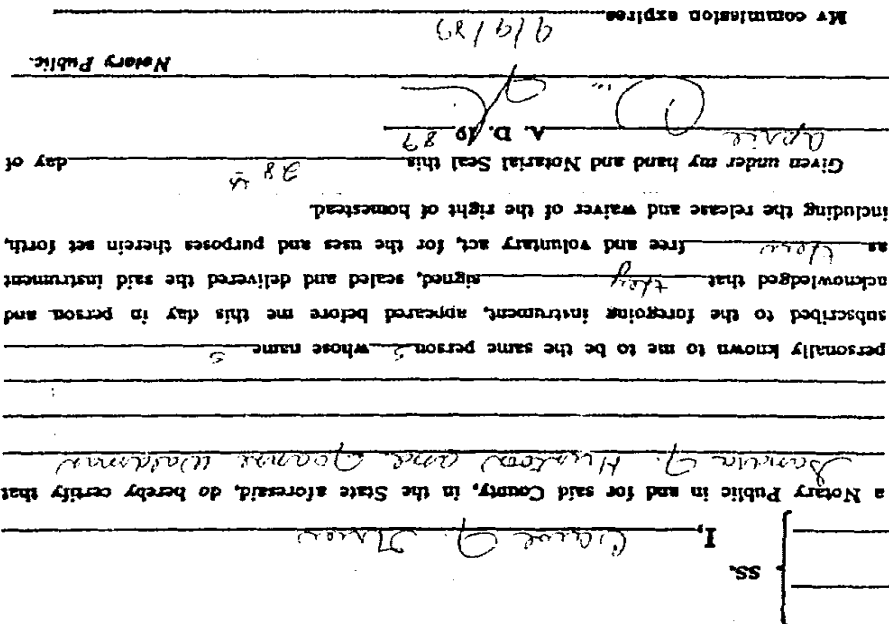 SS.
I,
a Notary Public in and for said County, in the State aforesaid, do hereby certify that
J. Huston and Joanne Waldman
personally known to me to be the same person s whose name s
subscribed to the foregoing instrument, appeared before me this day in person and
acknowledged that they signed, sealed and delivered the said instrument
as their free and voluntary act, for the uses and purposes therein set forth,
including the release and waiver of the right of homestead.
Given under my hand and Notarial Seal this 28 th day of
April A. D. 19 87
Notary Public.
My commission expires 9/9/87